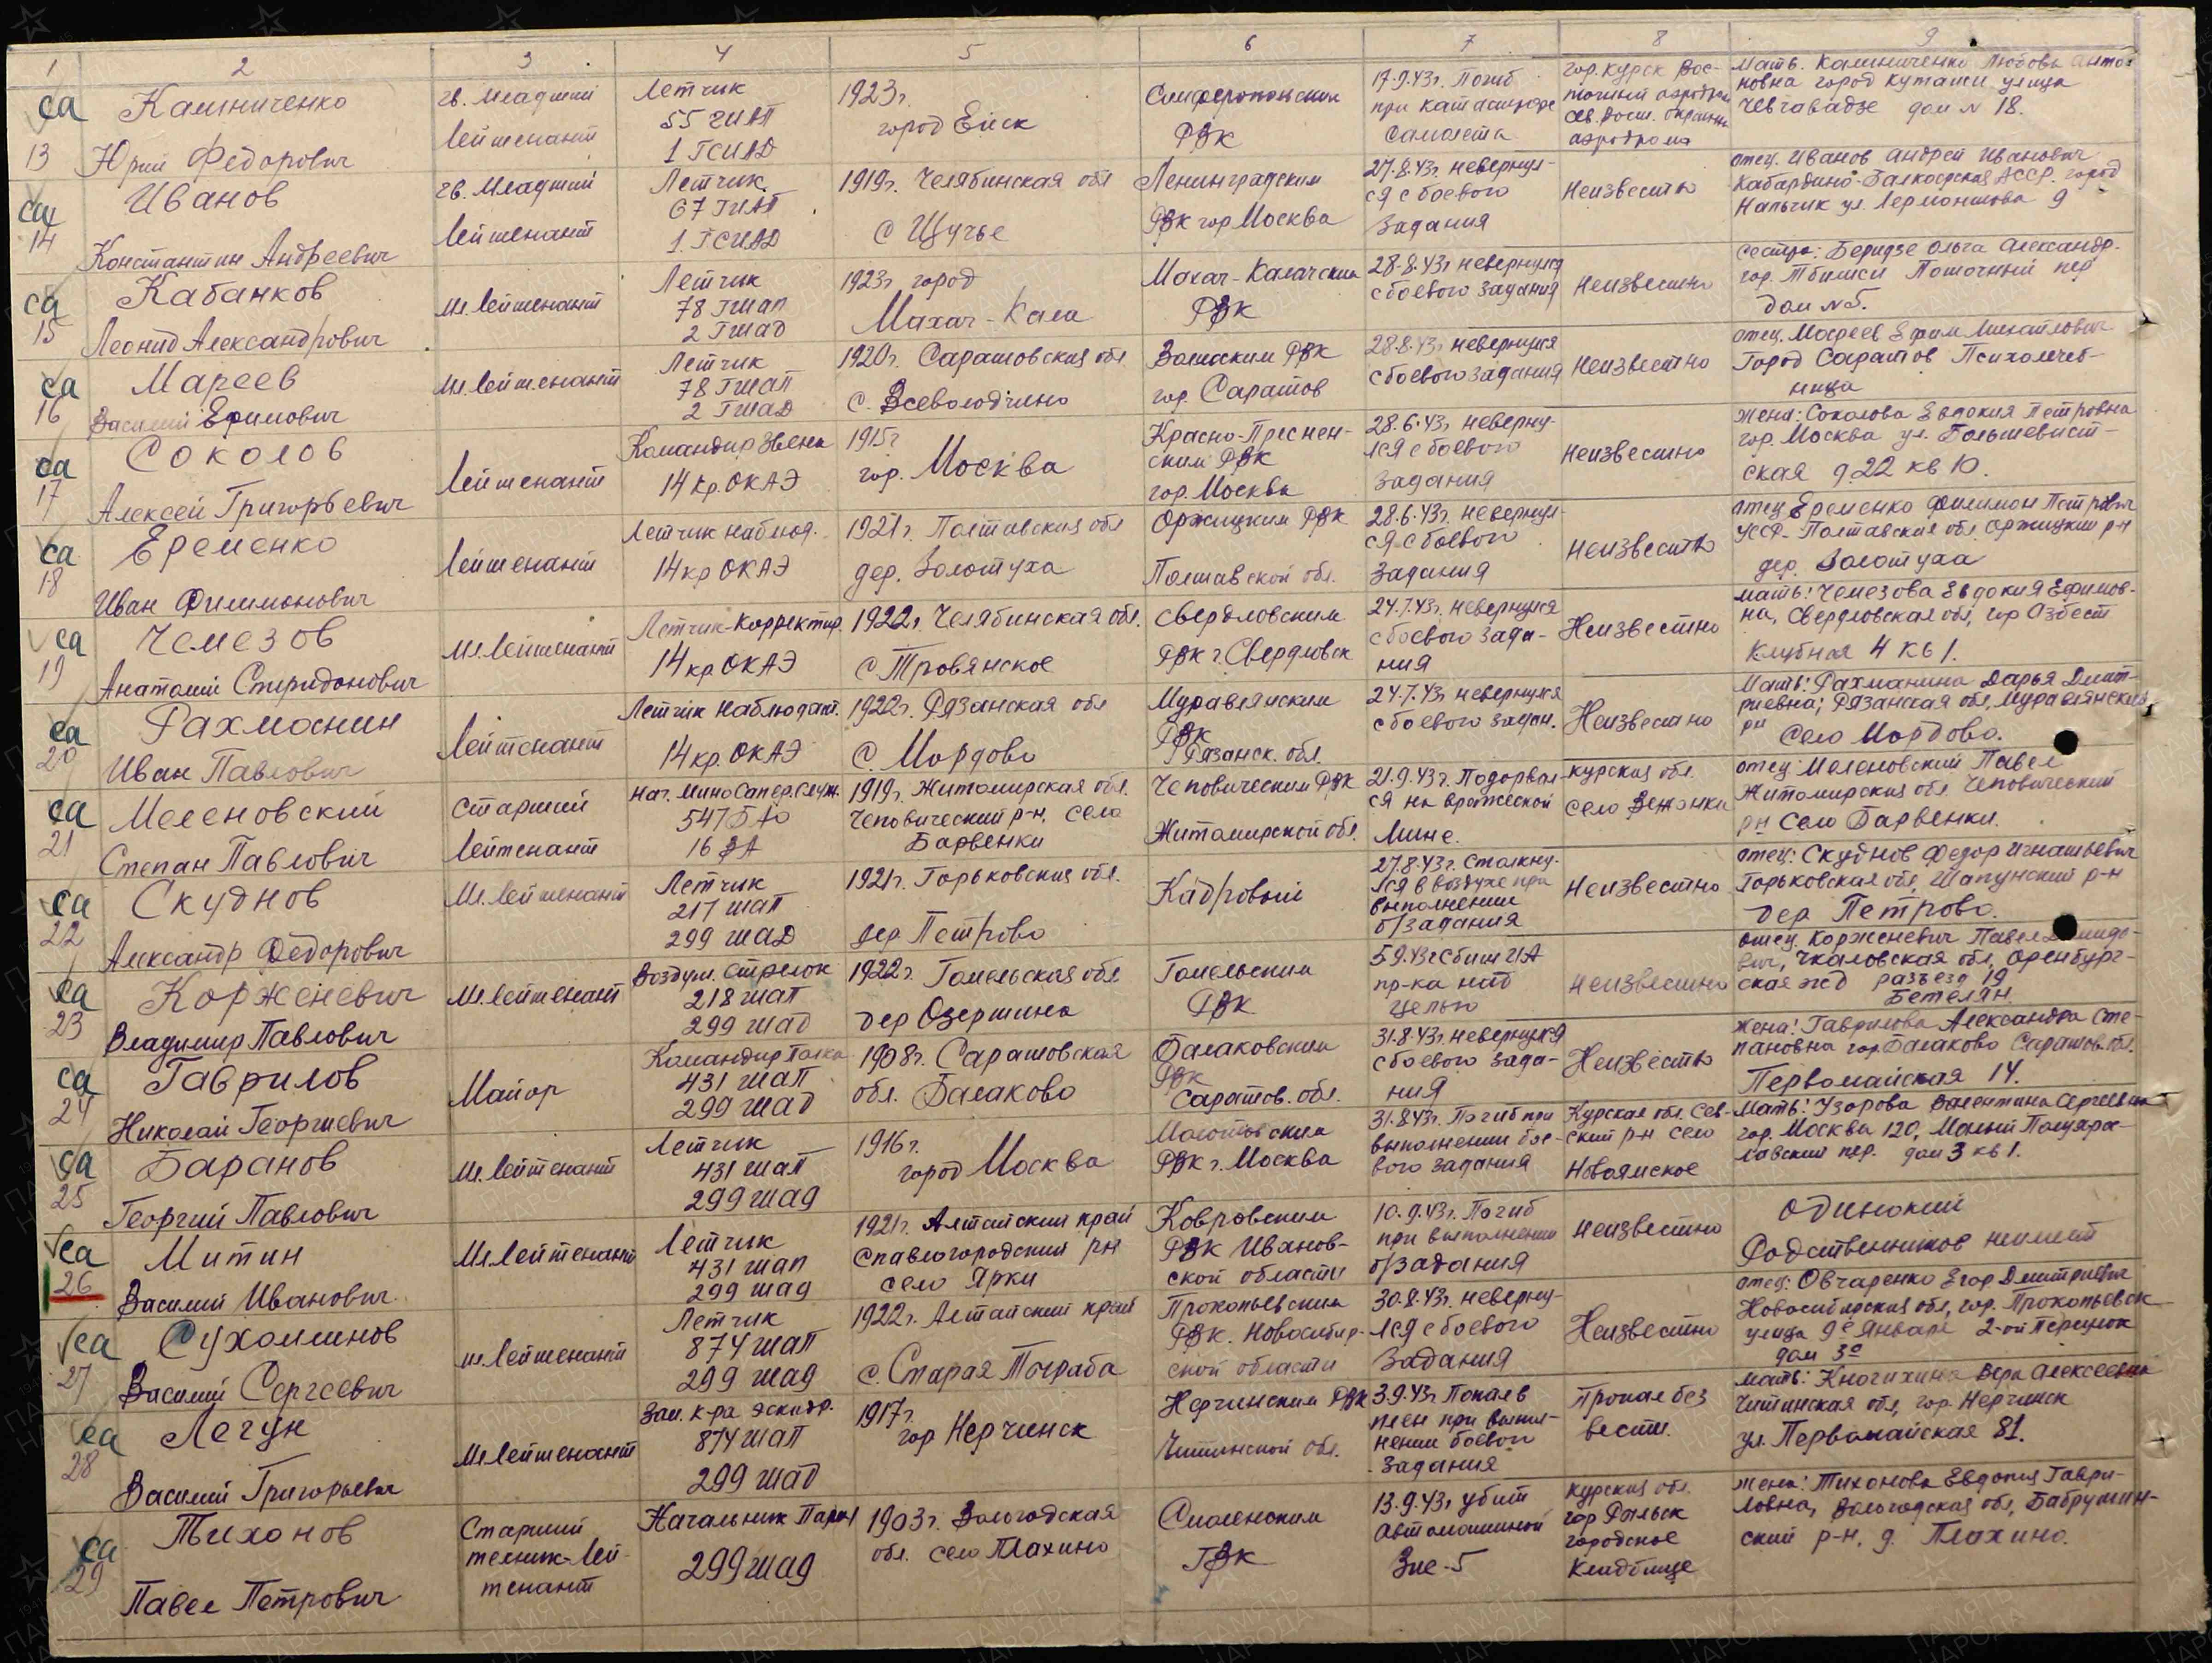 1 2 3 4 5 6 7 8 9
са
13
Калиниченко
Юрий Федорович
гв. Младший
Лейтенант
Летчик
55 ГИАП
1 ГСИАД
1923г.
город Ейск
Симферопольским
РВК
17.9.43г. Погиб
при катастрофе
самолета
гор. Курск Вос-
точный аэродром
сев. вост. окраина
аэродрома
Мать. Калиниченко Любовь Анто-
новна город Кутаиси улица
Чевчавадзе дом № 18.
са
14
Иванов
Константин Андреевич
гв. Младший
Лейтенант
Летчик
67 ГИАП
1. ГСИАД
1919г. Челябинская обл
с Щучье
Ленинградским
РВК гор Москва
27.8.43г. невернул-
ся с боевого
задания
Неизвестно
отец. Иванов Андрей Иванович
Кабардино-Балкарская АССР. город
Нальчик ул Лермонтова 9
са
15
Кабанков
Леонид Александрович
мл. Лейтенант
Летчик
78 ГШАП
2 ГШАД
1923г город
Махач-Кала
Махач-Калачским
РВК
28.8.43г невернулся
с боевого задания
Неизвестно
сестра: Беридзе Ольга Александр.
гор. Тбилиси Поточный пер
дом №5.
са
16
Мареев
Василий Ефимович
мл. Лейтенант
Летчик
78 ГШАП
2 ГШАД
1920г. Саратовская обл
с. Всеволодчино
Волжским РВК
гор. Саратов
28.8.43г невернулся
с боевого задания
Неизвестно
отец. Мареев Ефим Михайлович
Город Саратов Психолечеб-
ница
са
17
Соколов
Алексей Григорьевич
Лейтенант
Командир Звена
14 кр. ОКАЭ
1915г
гор. Москва
Красно-Преснен-
ским РВК
гор. Москва
28.6.43г неверну-
лся с боевого
задания
неизвестно
Жена: Соколова Евдокия Петровна
гор. Москва ул. Большевист-
ская д 22 кв 10.
са
18
Еременко
Иван Филимонович
Лейтенант
Летчик наблюд.
14 кр ОКАЭ
1921г. Полтавская обл
дер. Золотуха
Оржицким РВК
Полтавской обл.
28.6.43г. невернул-
ся с боевого
задания
неизвестно
отец Еременко Филимон Петрович
УССР- Полтавская обл. Оржицкий р-н
дер. Золотуха
са
19
Чемезов
Анатолий Спиридонович
мл Лейтенант
Летчик-Корректир.
14 кр ОКАЭ
1922г. Челябинская обл.
с Тровянское
Свердловским
РВК г. Свердловск
24.7.43г. невернулся
с боевого зада-
ния
Неизвестно
мать: Чемезова Евдокия Ефимов-
на, Свердловская обл, гор Азбест
Клубная 4 кв 1.
са
20
Рахманин
Иван Павлович
Лейтенант
Летчик Наблюдат.
14 кр. ОКАЭ
1922г. Рязанская обл
с Мордово
Муравлянским
РВК
Рязанск. обл.
24.7.43г невернулся
с боевого задан.
Неизвестно
Мать: Рахманина Дарья Дмит-
риевна; Рязанская обл, Муравлянский
рн село Мордово.
са
21
Меленовский
Степан Павлович
Старший
Лейтенант
Нач. МиноСапер.Служ.
547 БАО
16 ВА
1919г. Житомирская обл.
Чеповический р-н, село
Барвенки
Чеповическим РВК
Житомирской обл.
21.9.43г. Подорвал-
ся на вражеской
Мине.
Курская обл.
село
отец: Меленовский Павел
Житомирская обл Чеповический
рн село Барвенки.
са
22
Скуднов
Александр Федорович
Мл. Лейтенант
Летчик
217 шап
299 шад
1921г. Горьковская обл.
дер Петрово
Кадровый
27.8.43г. Столкну-
лся в воздухе при
выполнении
б/задания
Неизвестно
отец: Скуднов Федор Игнатьевич
Горьковская обл, Шапунский р-н
дер Петрово.
са
23
Корженевич
Владимир Павлович
Мл. лейтенант
Воздуш. Стрелок
218 шап
299 шад
1922г. Гомельская обл
дер Озершина
Гомельским
РВК
5.9.43г Сбит ИА
пр-ка над
целью
неизвестно
отец. Корженевич Павел
вич, Чкаловская обл, Оренбург-
ская жд разъезд 19
са
24
Гаврилов
Николай Георгиевич
Майор
Командир Полка
431 шап
299 шад
1908г. Саратовская
обл. Балаково
Балаковским
РВК
Саратов. обл.
31.8.43г. невернулся
с боевого зада-
ния
Неизвестно
Жена: Гаврилова Александра Сте-
пановна гор. Балаково Саратов. обл.
Первомайская 14.
са
25
Баранов
Георгий Павлович
мл. Лейтенант
Летчик
431 шап
299 шад
1916г.
город Москва
Молотовским
РВК г. Москва
31.8.43г. Погиб при
выполнении бое-
вого задания
Курская обл. Сев-
ский р-н село
Новоямское
Мать: Узорова Валентина Сергеевна
гор. Москва 120, Малый Полуяро-
славский пер. дом 3 кв 1.
са
26
Митин
Василий Иванович
Мл. Лейтенант
Летчик
431 шап
299 шад
1921г. Алтайский край
Славгородский рн
село Ярки
Ковровским
РВК Иванов-
ской области
10.9.43г. Погиб
при выполнении
б/задания
неизвестно
одинокий
Родственников неимеет
са
27
Сухомлинов
Василий Сергеевич
мл Лейтенант
Летчик
874 шап
299 шад
1922г. Алтайский край
с. Старая Тограба
Прокопьевским
РВК. Новосибир-
ской области
30.8.43г. неверну-
лся с боевого
задания
Неизвестно
отец: Овчаренко Егор Дмитриевич
Новосибирская обл, гор. Прокопьевск
улица 9е Января 2-ой Переулок
дом 3а
са
28
Легун
Василий Григорьевич
Мл Лейтенант
Зам. к-ра эскадр.
874 шап
299 шад
1917г.
гор Нерчинск
Нерчинским РВК
Читинской обл.
3.9.43г Попал в
плен при выпол-
нении боевого
задания
Пропал без
вести.
мать: Вера Алексеевна
Читинская обл, гор. Нерчинск
ул. Первомайская 81.
са
29
Тихонов
Павел Петрович
Старший
техник-Лей-
тенант
Начальник
299 шад
1903г. Вологодская
обл. село Плахино
Смоленским
ГВК
13.9.43г убит
автомашиной
Зис-5
Курская обл.
гор Рыльск
городское
Кладбище
Жена: Тихонова Евдокия Гаври-
ловна, Вологодская обл, Бабрушин-
ский р-н, д. Плахино.
ПАМЯТЬ
НАРОДА